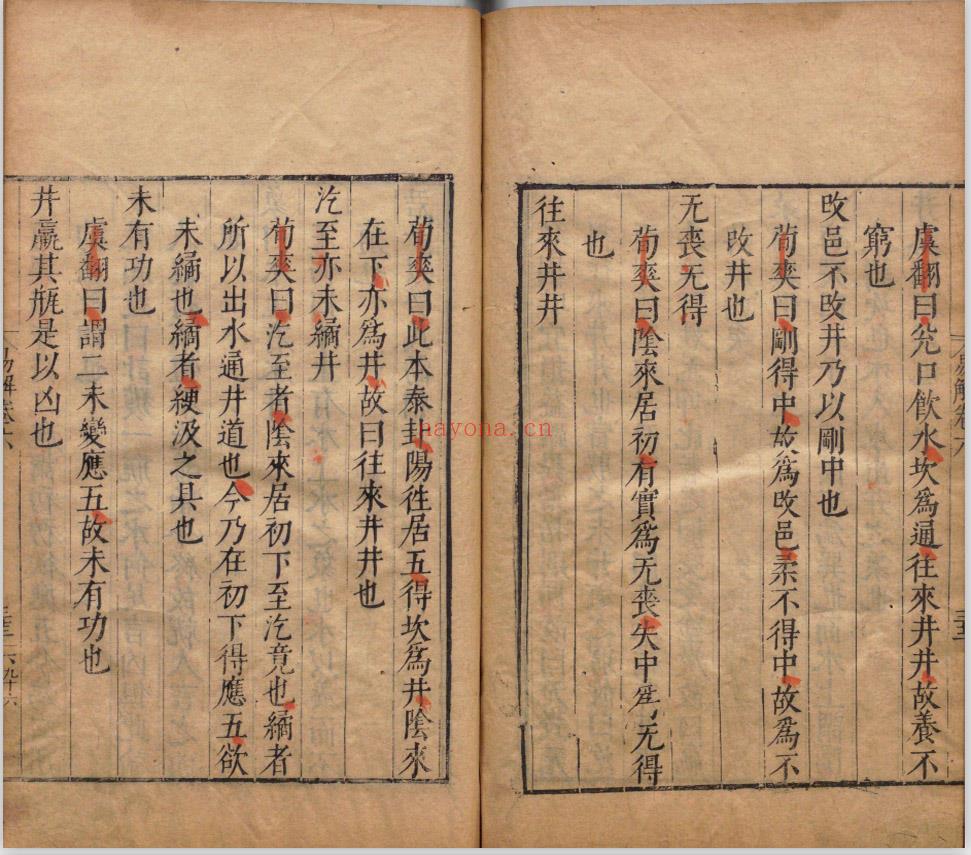 虞翻曰兊口飲水坎爲通往來井井故養不
窮也
改邑不改井乃以剛中也
荀爽曰剛得中故爲改邑柔不得中故爲不
改井也
无喪无得
荀爽曰陰來居初有實爲无喪失中爲无得
也
往來井井
荀爽曰此本泰卦陽往居五得坎爲井陰來
在下亦爲井故曰往來井井也
汔至亦未繘井
荀爽曰汔至者陰來居初下至汔竟也繘者
所以出水通井道也今乃在初下得應五欲
未繘也繘者綆汲之具也
未有功也
虞翻曰謂二未變應五故未有功也
井羸其瓶是以凶也
易解卷六
易解卷六
nayona.cn